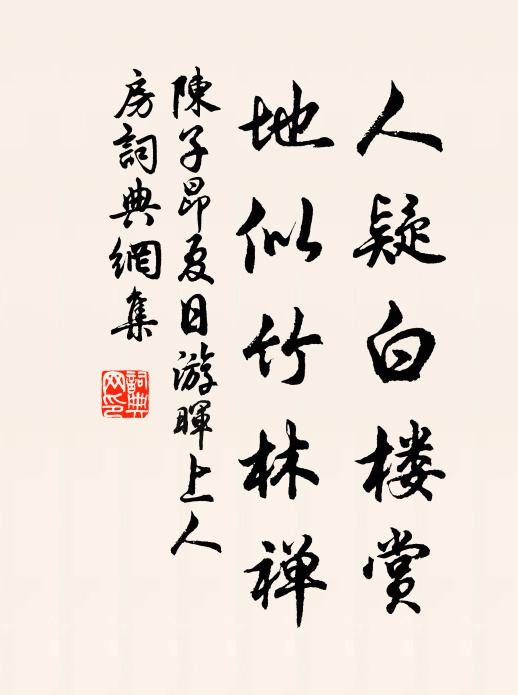 人疑白楼赏
地似竹林禅
陳子昂夏日游暉上人
房詞典網集
詞典
网印